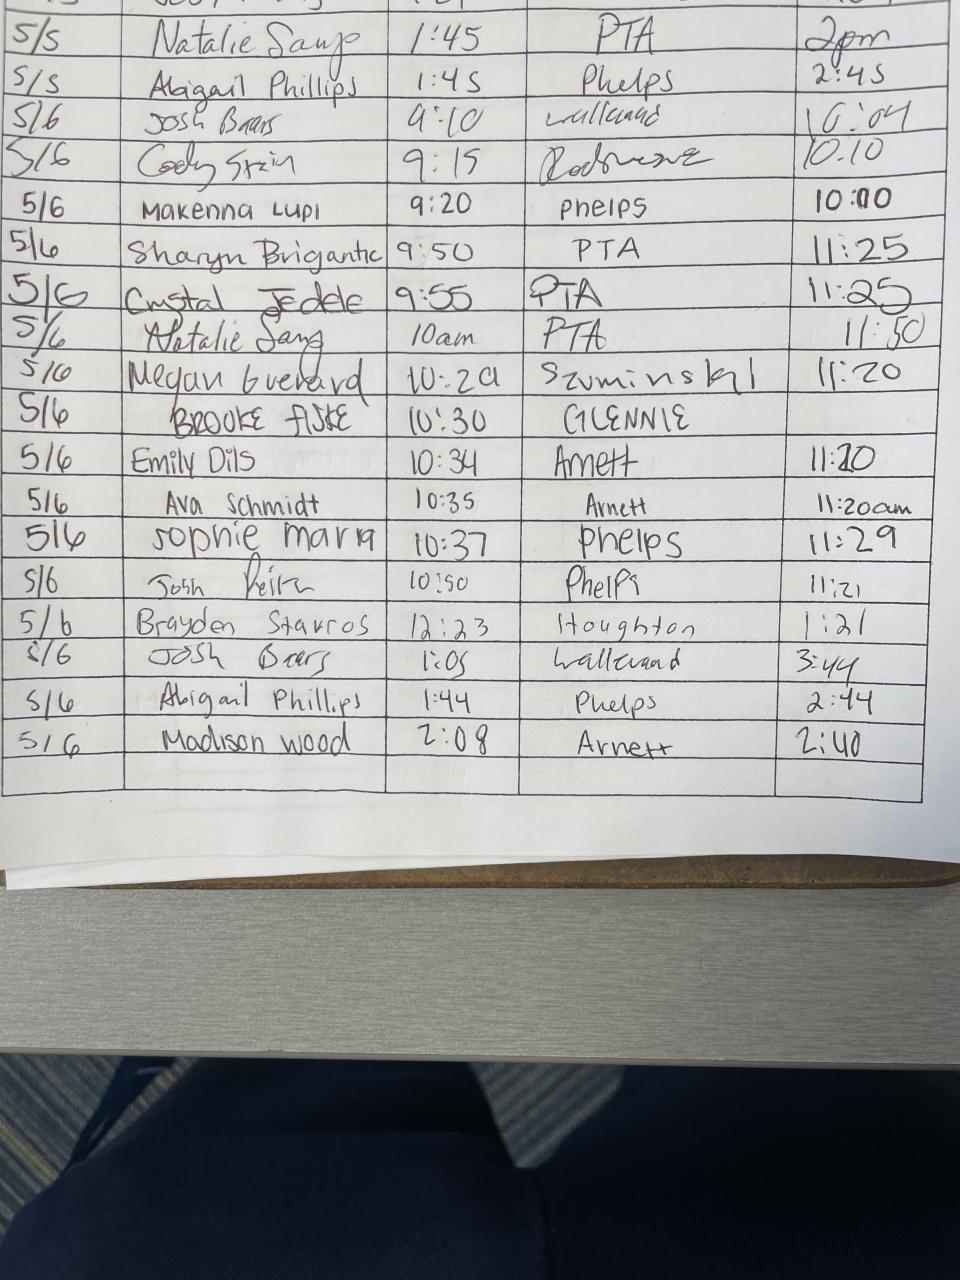 5/5 Natalie 1:45 PTA 2pm
5/5 Abigail Phillips 1:45 Phelps 2:45
5/6 Josh 9:10 10:04
5/6 Cody 9:15 10:10
5/6 Makenna Lupi 9:20 Phelps 10:00
5/6 Sharyn Brigantic 9:50 PTA 11:25
5/6 Crystal Jedele 9:55 PTA 11:25
5/6 Natalie 10am PTA 11:50
5/6 Megan Guerard 10:29 Szuminski 11:20
5/6 BROOKE FISKE 10:30 GLENNIE
5/6 Emily Dils 10:34 Arnett 11:20
5/6 Ava Schmidt 10:35 Arnett 11:20am
5/6 Sophie Maria 10:37 Phelps 11:29
5/6 Josh 10:50 Phelps 11:21
5/6 Brayden Stavros 12:23 Houghton 1:21
5/6 Josh 1:05 3:44
5/6 Abigail Phillips 1:44 Phelps 2:44
5/6 Madison Wood 2:08 Arnett 2:40